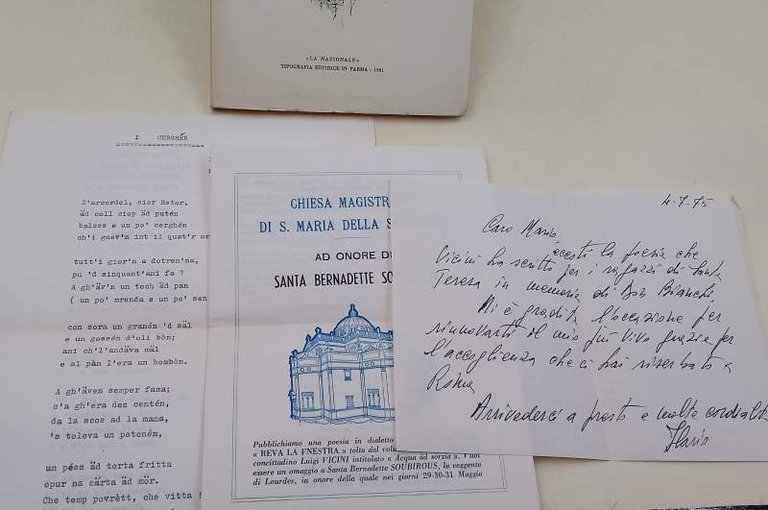 «LA NAZIONALE»
TIPOGRAFIA EDITRICE IN PARMA - 1981
I CERGHÉN
S'arcordel, cior Retor,
äd coll ciop äd putén
baloss e un po' cerghén
ch'i gnev'n int il quat'r or
tutt'i gior'n a dotren'na,
pu 'd sinquant'ani fa ?
A gh'är'n un toch äd pan
( un po' mrenda e un po' sen
con sora un granén 'd säl
e un gossén d'oli bòn;
ani ch'l'andäva mäl
e al pàn l'era un bombòn.
A gh'även semper fama;
s'a gh'era dez centén,
da la scos ad la mama,
's toleva un patonén,
un péss äd torta fritta
opur na cärta äd mòr.
Che temp povrètt, che vitta
CHIESA MAGISTR
DI S. MARIA DELLA S
AD ONORE DI
SANTA BERNADETTE SO
Pubblichiamo una poesia in dialetto
« REVA LA FNESTRA » tolta dal volu
concittadino Luigi VICINI intitolato « Acqua äd sorzia ». Vuol
essere un omaggio a Santa Bernadette SOUBIROUS, la veggente
di Lourdes, in onore della quale nei giorni 29-30-31 Maggio
4-7-75
Caro Mario,
accetti la poesia che
Vicini ha scritto per i ragazzi di Santa
Teresa in memoria di Don Bianchi.
Mi è gradita l'occasione per
rinnovarti il mio più vivo grazie per
l'accoglienza che ci hai riserbato a
Roma
Arrivederci a presto e molte cordialità
Ilario